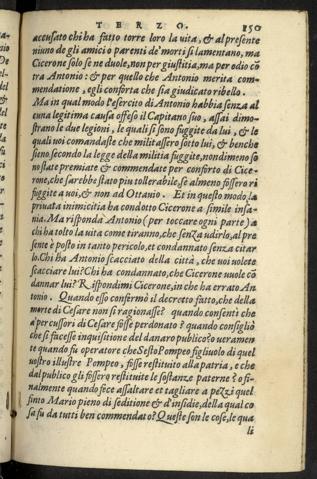 TERZO. 150
accusato chi ha fatto torre loro la vita, & al presente
niuno de gli amici o parenti de' morti si lamentano, ma
Cicerone solo se ne duole, non per giustitia, ma per odio cō
tra Antonio: & per quello che Antonio merita com
mendatione, egli conforta che sia giudicato ribello.
Ma in qual modo l'esercito di Antonio habbia senza al
cuna legitima causa offeso il Capitano suo, assai dimo
strano le due legioni, le quali si sono fuggite da lui, & le
quali voi comandaste che militassero sotto lui, & benche
sieno secondo la legge della militia fuggite, nondimeno so
no state premiate & commendate per conforto di Cice-
rone, che sarebbe stato piu tollerabile, se almeno fossero ri
fuggite a voi, & non ad Ottavio. Et in questo modo la
privata inimicitia ha condotto Cicerone a simile insa-
nia. Ma risponda Antonio (per toccare ogni parte) a
chi ha tolto la vita come tiranno, che senza udirlo, al pre
sente è posto in tanto pericolo, et condannato senza citar
lo. Chi ha Antonio scacciato della città, che voi volete
scacciare lui? Chi ha condannato, che Cicerone vuole cō
dannar lui? Rispondimi Cicerone, in che ha errato An
tonio. Quando esso confirmò il decretto fatto, che della
morte di Cesare non si ragionasse? quando consenti che
a' percussori di Cesare fosse perdonato? quando consigliò
che si facesse inquisitione del danaro publico? o veramen
te quando fu operatore che Sesto Pompeo figliuolo di quel
vostro illustre Pompeo, fosse restituito alla patria, e che
dal publico gli fossero restituite le sostanze paterne? o fi-
nalmente quando fece assaltare et tagliare a pezzi quel
finto Mario pieno di seditione & d'insidie, della qual co
sa fu da tutti ben commendato? Queste son le cose, le qua
li